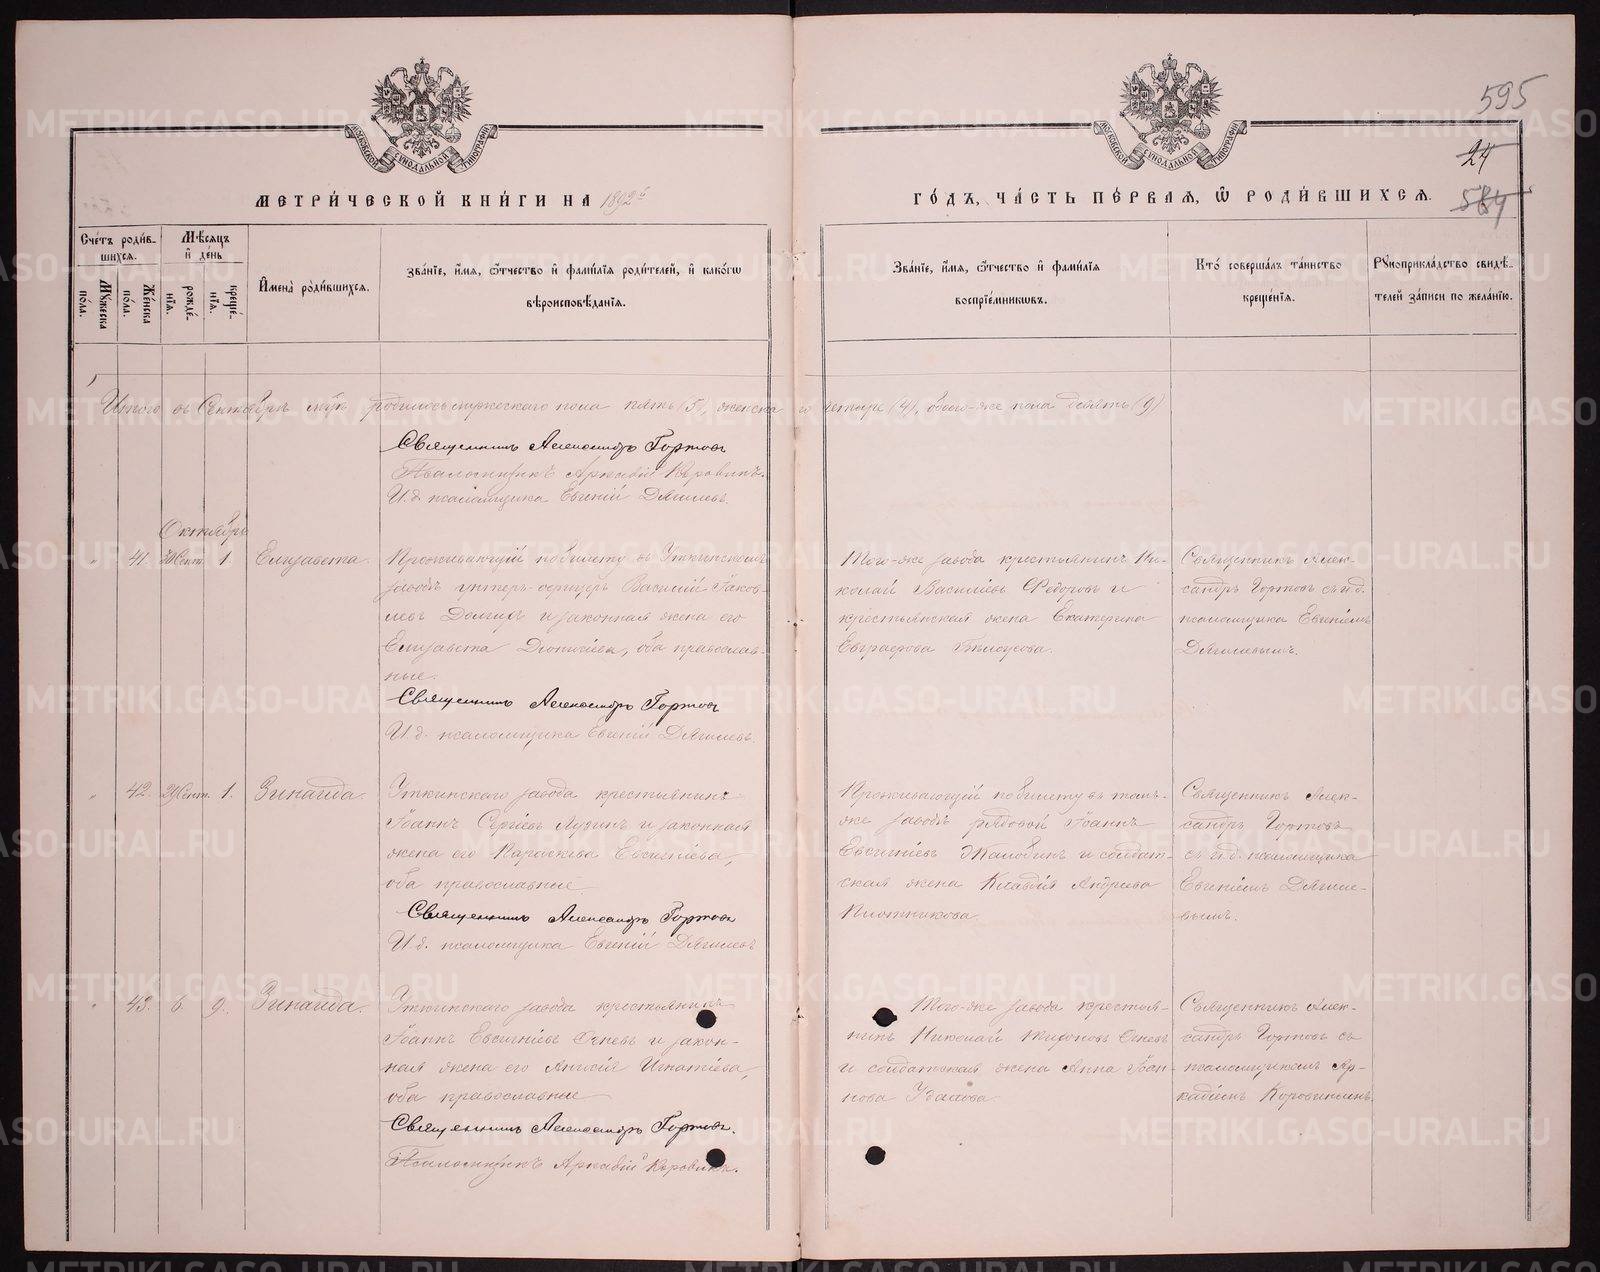 595
24
564
МОСКОВСКОЙ СѴНОДАЛЬНОЙ ТИПОГРАФІИ
МОСКОВСКОЙ СѴНОДАЛЬНОЙ ТИПОГРАФІИ
МЕТРИ́ЧЕСКОЙ КНИ́ГИ НА 1892й
ГО́ДЪ, ЧА́СТЬ ПЕ́РВАЯ, Ѿ РОДИ́ВШИХСЯ.
Сче́тъ роди́в-
шихся.
Му́жеска по́ла.
Же́нска по́ла.
Мѣ́сяцъ и де́нь
рожде́-
нія.
креще́-
нія.
Имена̀ роди́вшихся.
Зва́ніе, и́мя, ѻ́тчество и фами́лія роди́телей, и како́гѡ
вѣроисповѣ́данія.
Зва́ніе, и́мя, ѻ́тчество и фами́лія
воспріе́мникѡвъ.
Кто́ соверша́лъ та́инство
креще́нія.
Рꙋкоприкла́дство свидѣ́-
телей за́писи по жела́нію.
Итого въ Сентябрѣ мцѣ родилось мужескаго пола пять (5), женскаго четыре (4), обоего-же пола девять (9)
Священникъ Александръ Гортовъ
Псаломщикъ Аркадій Коровинъ.
И. д. псаломщика Евгеній Дягилевъ.
Октябрь
" 41. 30 Сент. 1. Елизавета.
Проживающій по билету въ Уткинскомъ
заводѣ унтеръ-офицеръ Василій Іаков-
левъ Долгих и законная жена его
Елизавета Діонисіева, оба православ-
ные.
Священникъ Александръ Гортовъ
И. д. псаломщика Евгеній Дягилевъ.
Того-же завода крестьянинъ Ни-
колай Васильевъ Федоровъ и
крестьянская жена Екатерина
Евграфова Бѣлоусова.
Священникъ Алек-
сандръ Гортовъ съ и. д.
псаломщика Евгеніемъ
Дягилевымъ.
" 42. 29 Сент. 1. Зинаида.
Уткинскаго завода крестьянинъ
Іоаннъ Сергѣевъ Лузинъ и законная
жена его Параскева Евсигніева,
оба православные
Священникъ Александръ Гортовъ
И. д. псаломщика Евгеній Дягилевъ
Проживающій по билету въ томъ-
же заводѣ рядовой Іоаннъ
Евсигніевъ Жалобинъ и солдат-
ская жена Клавдія Андреева
Плотникова.
Священникъ Алек-
сандръ Гортовъ
съ и. д. псаломщика
Евгеніемъ Дягиле-
вымъ.
" 43. 6. 9. Зинаида.
Уткинскаго завода крестьянинъ
Іоаннъ Евсигніевъ Огневъ и закон-
ная жена его Анисія Игнатіева,
оба православные
Священникъ Александръ Гортовъ.
Псаломщикъ Аркадій Коровинъ.
Того-же завода крестья-
нинъ Николай Тихоновъ Огневъ
и солдатская жена Анна Іоан-
нова Удалова.
Священникъ Алек-
сандръ Гортовъ съ
псаломщикомъ Ар-
кадіемъ Коровинымъ.
METRIKI.GASO-URAL.RU